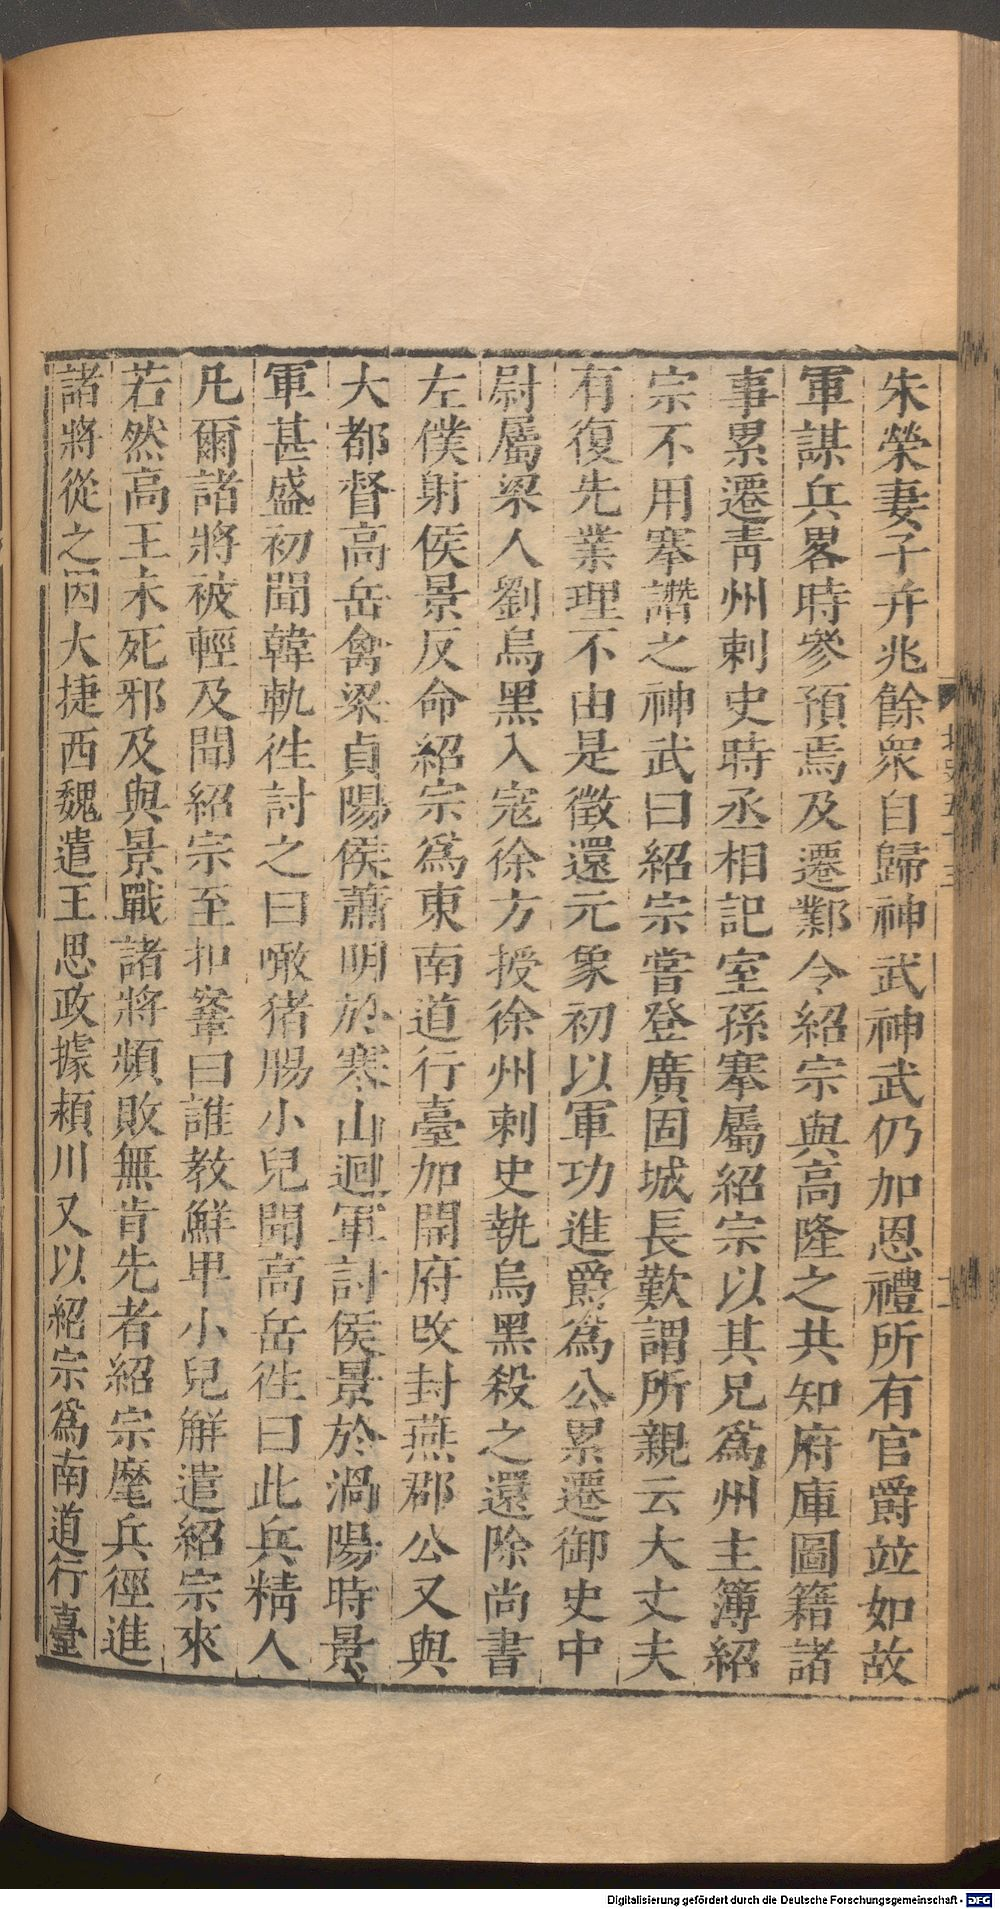 朱榮妻子幷兆餘衆自歸神武神武仍加恩禮所有官爵竝如故
軍謀兵畧時參預焉及遷鄴令紹宗與高隆之共知府庫圖籍諸
事累遷靑州刺史時丞相記室孫搴屬紹宗以其兄爲州主簿紹
宗不用搴譖之神武曰紹宗嘗登廣固城長歎謂所親云大丈夫
有復先業理不由是徵還元象初以軍功進爵爲公累遷御史中
尉屬梁人劉烏黑入寇徐方授徐州刺史執烏黑殺之還除尚書
左僕射侯景反命紹宗爲東南道行臺加開府改封燕郡公又與
大都督高岳禽梁貞陽侯蕭明於寒山迴軍討侯景於渦陽時景
軍甚盛初聞韓軌徃討之曰噉猪腸小兒聞高岳徃曰此兵精人
凡爾諸將被輕及聞紹宗至扣鞌曰誰教鮮卑小兒解遣紹宗來
若然高王未死邪及與景戰諸將頻敗無肯先者紹宗麾兵徑進
諸將從之因大捷西魏遣王思政據頴川又以紹宗爲南道行臺
Digitalisierung gefördert durch die Deutsche Forschungsgemeinschaft - DFG